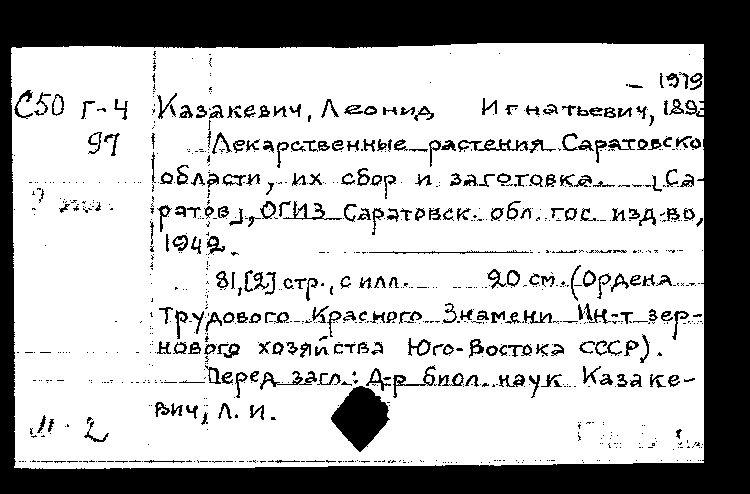 – 1979
С50 Г-4 Казакевич, Леонид Игнатьевич, 1893
97 Лекарственные растения Саратовско
области, их сбор и заготовка. [Са-
ратов], ОГИЗ Саратовск. обл. гос. изд-во,
1942.
81,[2] стр., с илл. 20 см. (Ордена
Трудового Красного Знамени Ин-т зер-
нового хозяйства Юго-Востока СССР).
Перед загл.: Д-р биол. наук Казаке-
вич, Л. И.